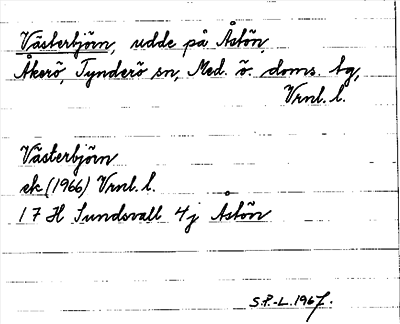 Västerbjörn, udde på Åstön,
Åkerö, Tynderö sn, Med. ö. doms. tg,
Vrnl. l.
Västerbjörn
ek (1966) Vrnl. l.
17 H Sundsvall 4j Åstön
S.P.-L. 1967.